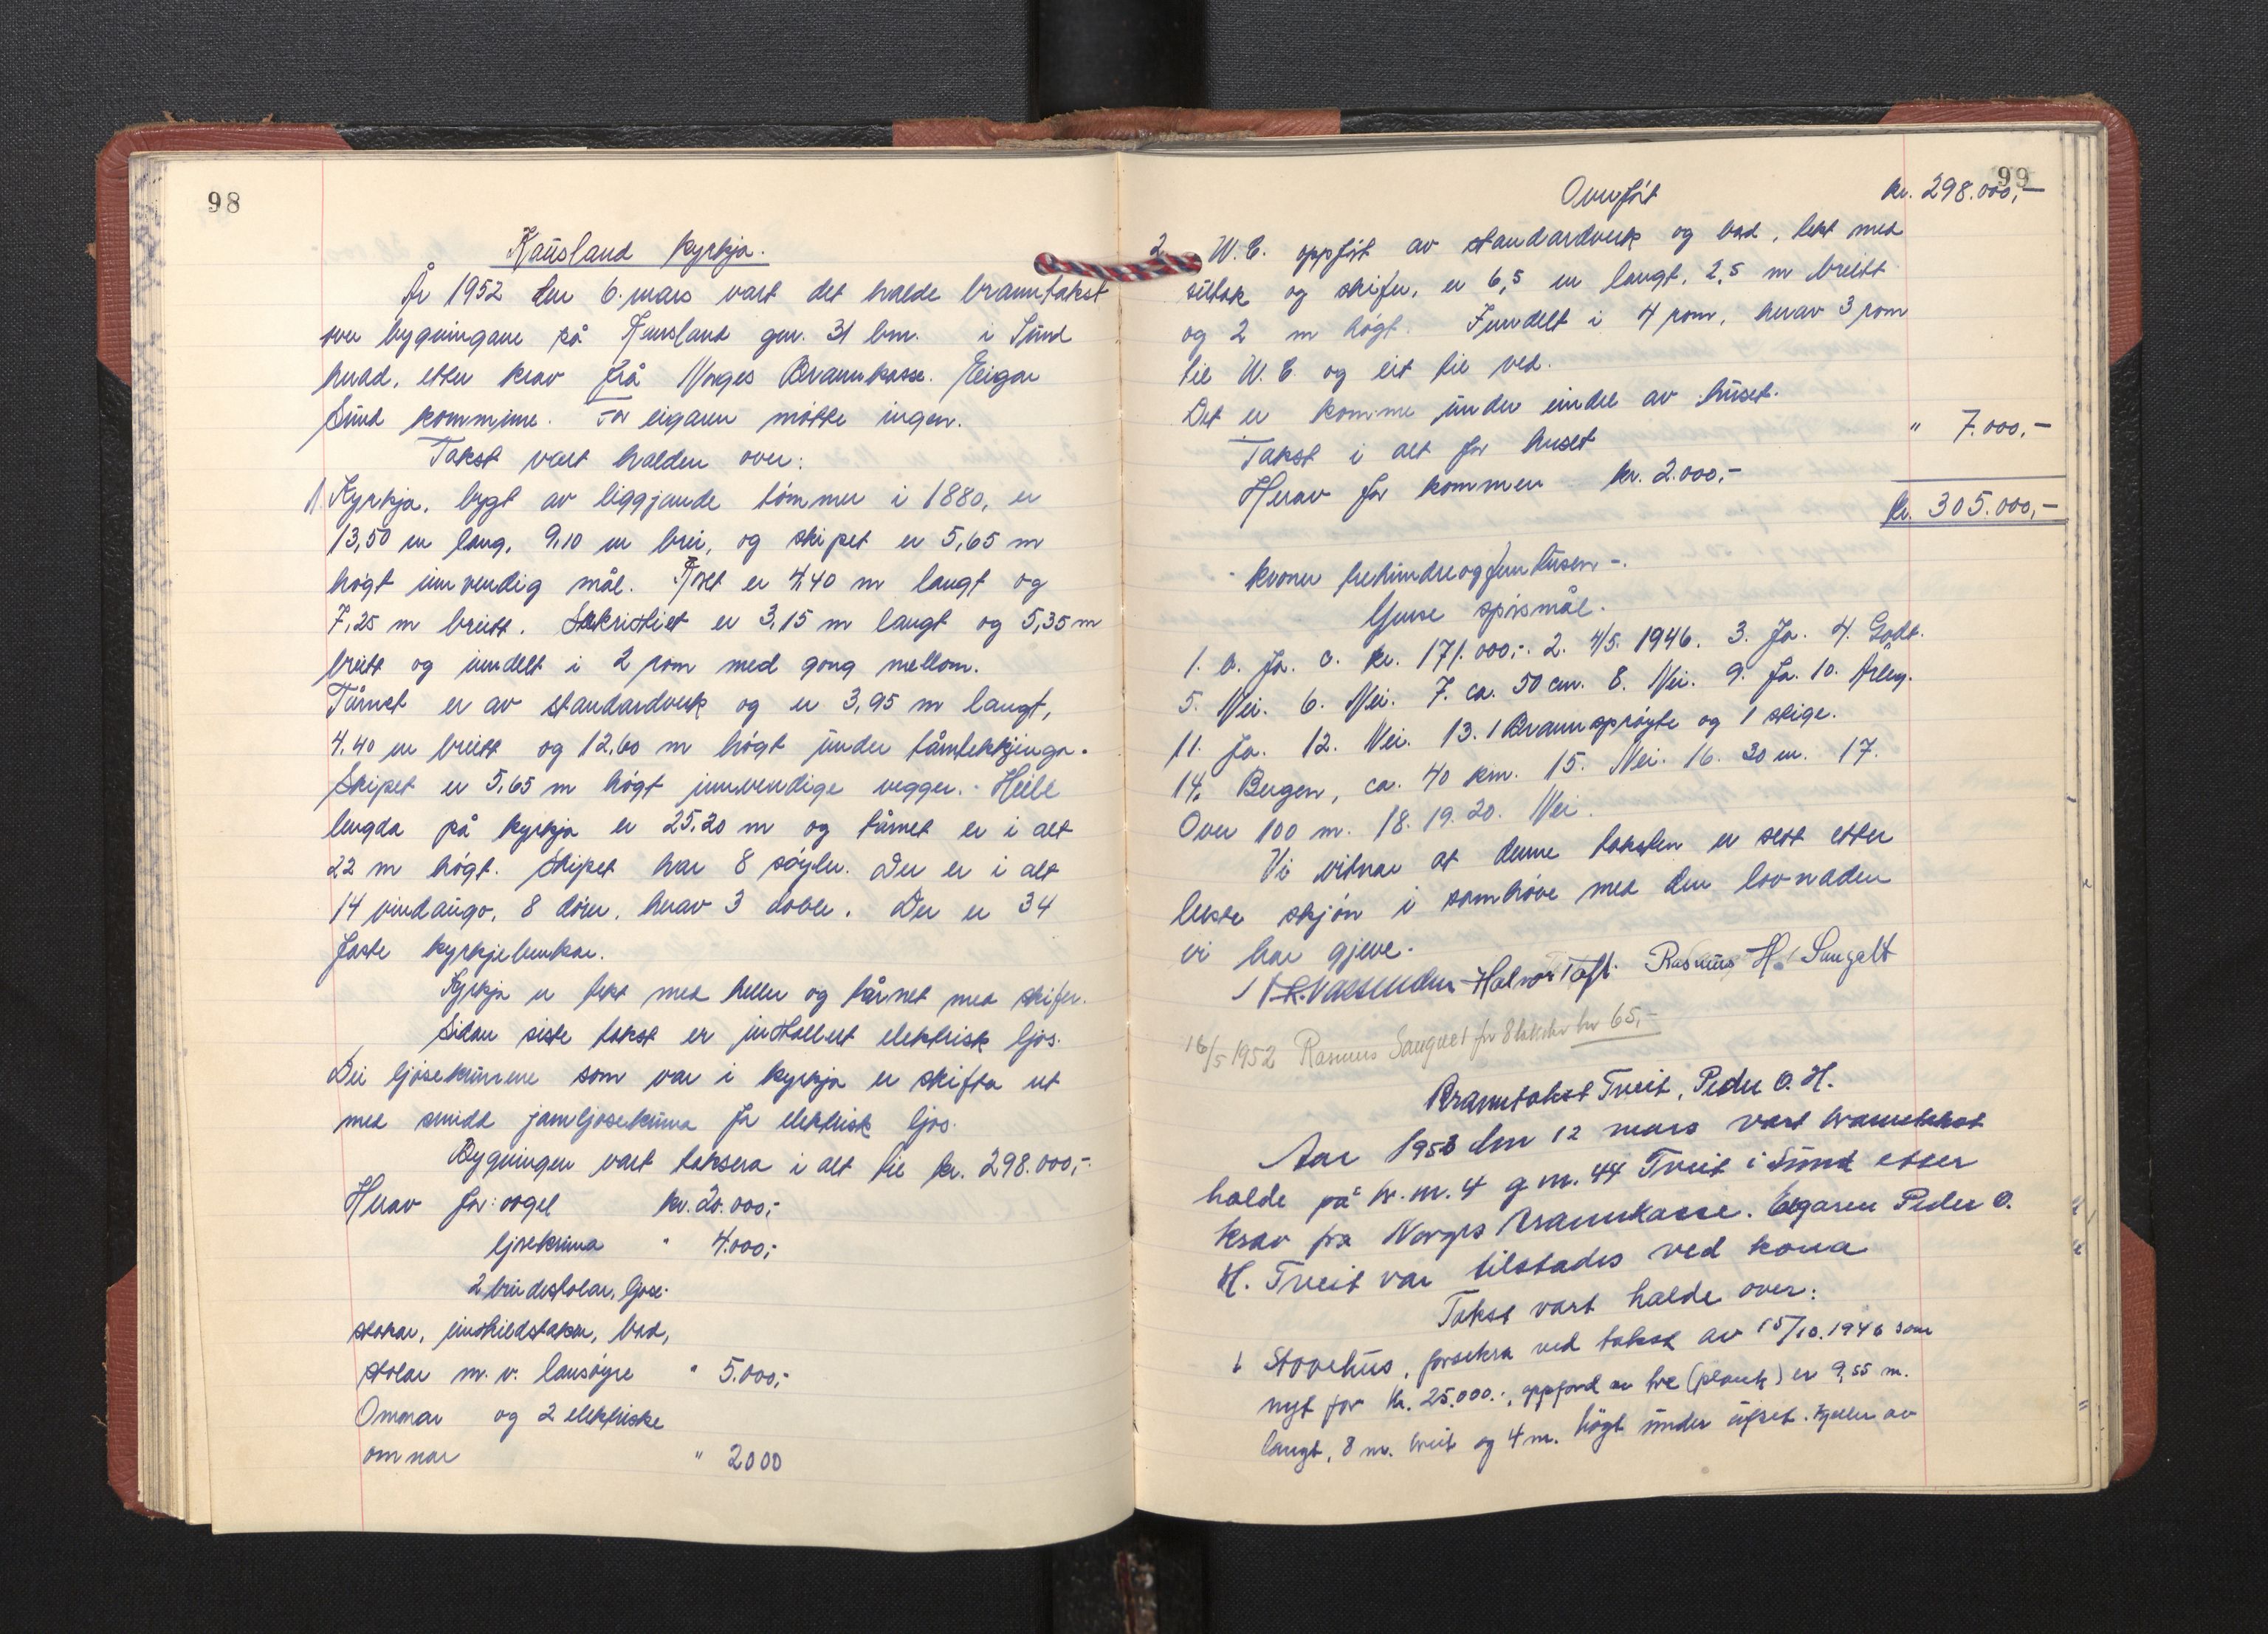 98
Kausland kyrkja.
År 1952 den 6. mars vart det halde branntakst
over bygningane på Kausland gnr. 31 bnr. i Sund
herad, etter krav frå Norges Brannkasse. Eigar
Sund kommune. For eigaren møtte ingen.
Takst vart halden over:
1. Kyrkja, bygt av liggjande tømmer i 1880, er
13,50 m lang, 9,10 m brei, og skipet er 5,65 m
høgt innvendig mål. Koret er 4,40 m langt og
7,25 m breitt. Sakristiet er 3,15 m langt og 5,35 m
breitt og inndelt i 2 rom med gong mellom.
Tårnet er av standardverk og er 3,95 m langt,
4.40 m breitt og 12,60 m høgt under tårntekkjinga.
Skipet er 5,65 m høgt innvendige vegger. Heile
lengda på kyrkja er 25,20 m og tårnet er i alt
22 m høgt. Skipet har 8 søyler. Der er i alt
14 vindaugo, 8 dører, herav 3 doble. Der er 34
faste kyrkjebenkar.
Kyrkja er tekt med heller og tårnet med skifer.
Sidan siste takst er installert elektrisk ljos.
Dei ljosekrunene som var i kyrkja er skifta ut
med smidd jarnljosekruna for elektrisk ljos.
Bygningen vart taksera i alt til kr. 298.000,-
Herav for: orgel kr. 20.000,-
ljosekruna " 4.000,-
2 brudestolar, ljose-
stakar, einskildstakar, bord,
stolar m. v. lausøyre " 5.000,-
Omnar og 2 elektriske
omnar " 2000
99
Overført kr. 298.000,-
2. W.C. oppført av standardverk og bord, tekt med
sutak og skifer, er 6,5 m langt, 2,5 m breitt
og 2 m høgt. Inndelt i 4 rom, herav 3 rom
til W.C. og eit til ved.
Det er komme under eindel av huset.
Takst i alt for huset " 7.000,-
Herav for kommen kr. 2.000,-
kr. 305.000,-
- kroner trehundreogfemtusen -.
Ymse spørsmål.
1. b. Ja. c. kr. 171.000,-. 2. 4/5. 1946. 3. Ja. 4. Godt.
5. Nei. 6. Nei. 7. ca. 50 cm. 8. Nei. 9. Ja. 10. Årleg.
11. Ja. 12. Nei. 13. 1 Brannsprøyte og 1 stige.
14. Bergen, ca. 40 km. 15. Nei. 16. 30 m. 17.
Over 100 m. 18. 19. 20. Nei.
Vi vitnar at denne taksten er sett etter
beste skjøn i samhøve med den lovnaden
vi har gjeve.
Halvor Toft. Rasmus H. Sangolt
16/5 1952 Rasmus Sangolt for 8 takster kr 65,-
Branntakst Tveit, Peder O. H.
Aar 1953 den 12 mars vart branntakst
halde på br. nr. 4 g. nr. 44 Tveit i Sund etter
krav fra Norges Brannkasse. Eigaren Peder O.
H. Tveit var tilstades ved kona
Takst vart halde over:
1 Stovehus, forsekra ved takst av 15/10. 1946 som
nyt for Kr. 25.000.-, oppførd av tre (plank) er 9,55 m.
langt, 8 m. breit og 4 m. høgt under ufset. Kjeller av